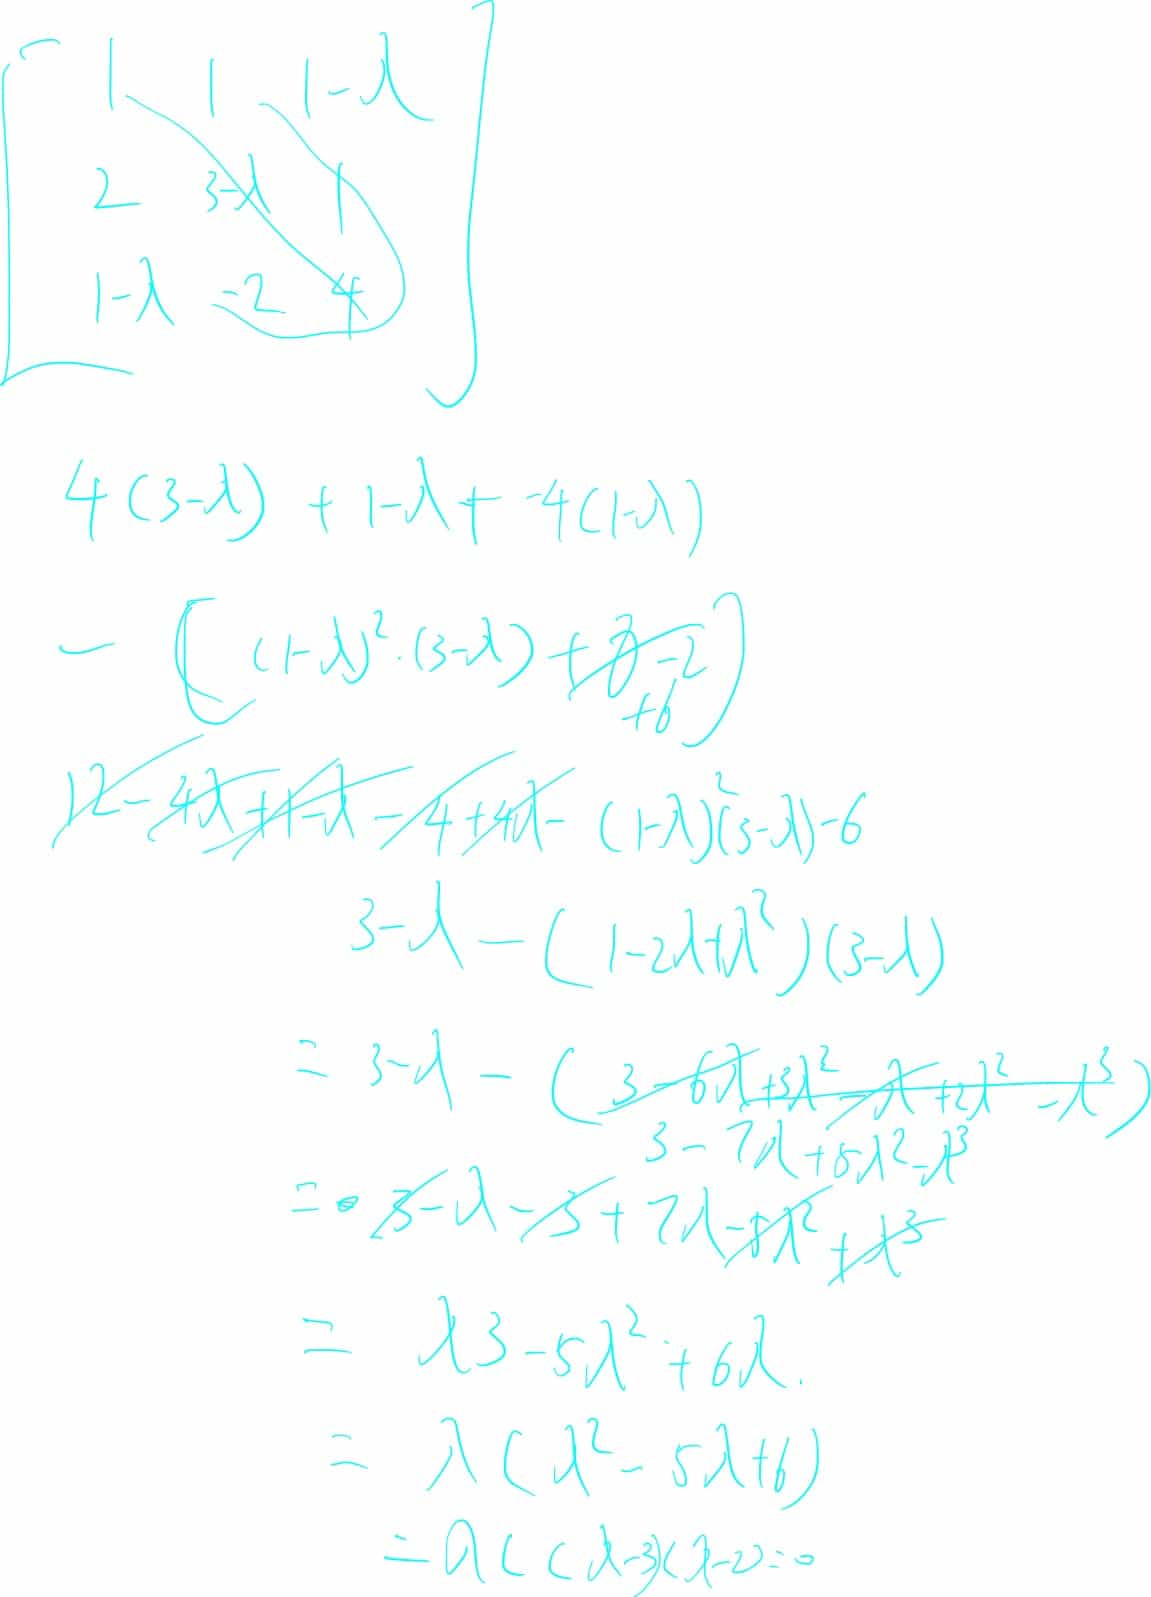 1 1 1-λ
2 3-λ 1
1-λ -2 4
4(3-λ) + 1-λ + -4(1-λ)
- [(1-λ)²·(3-λ) + -2
+6]
12-4λ+1-λ-4+4λ-(1-λ)²(3-λ)-6
3-λ-(1-2λ+λ²)(3-λ)
= 3-λ-(3-6λ+3λ²-λ+2λ²-λ³)
3-7λ+5λ²-λ³
= 3-λ-3+7λ-5λ²+λ³
= λ3-5λ²+6λ.
= λ(λ²-5λ+6)
= λ((λ-3)(λ-2)=0